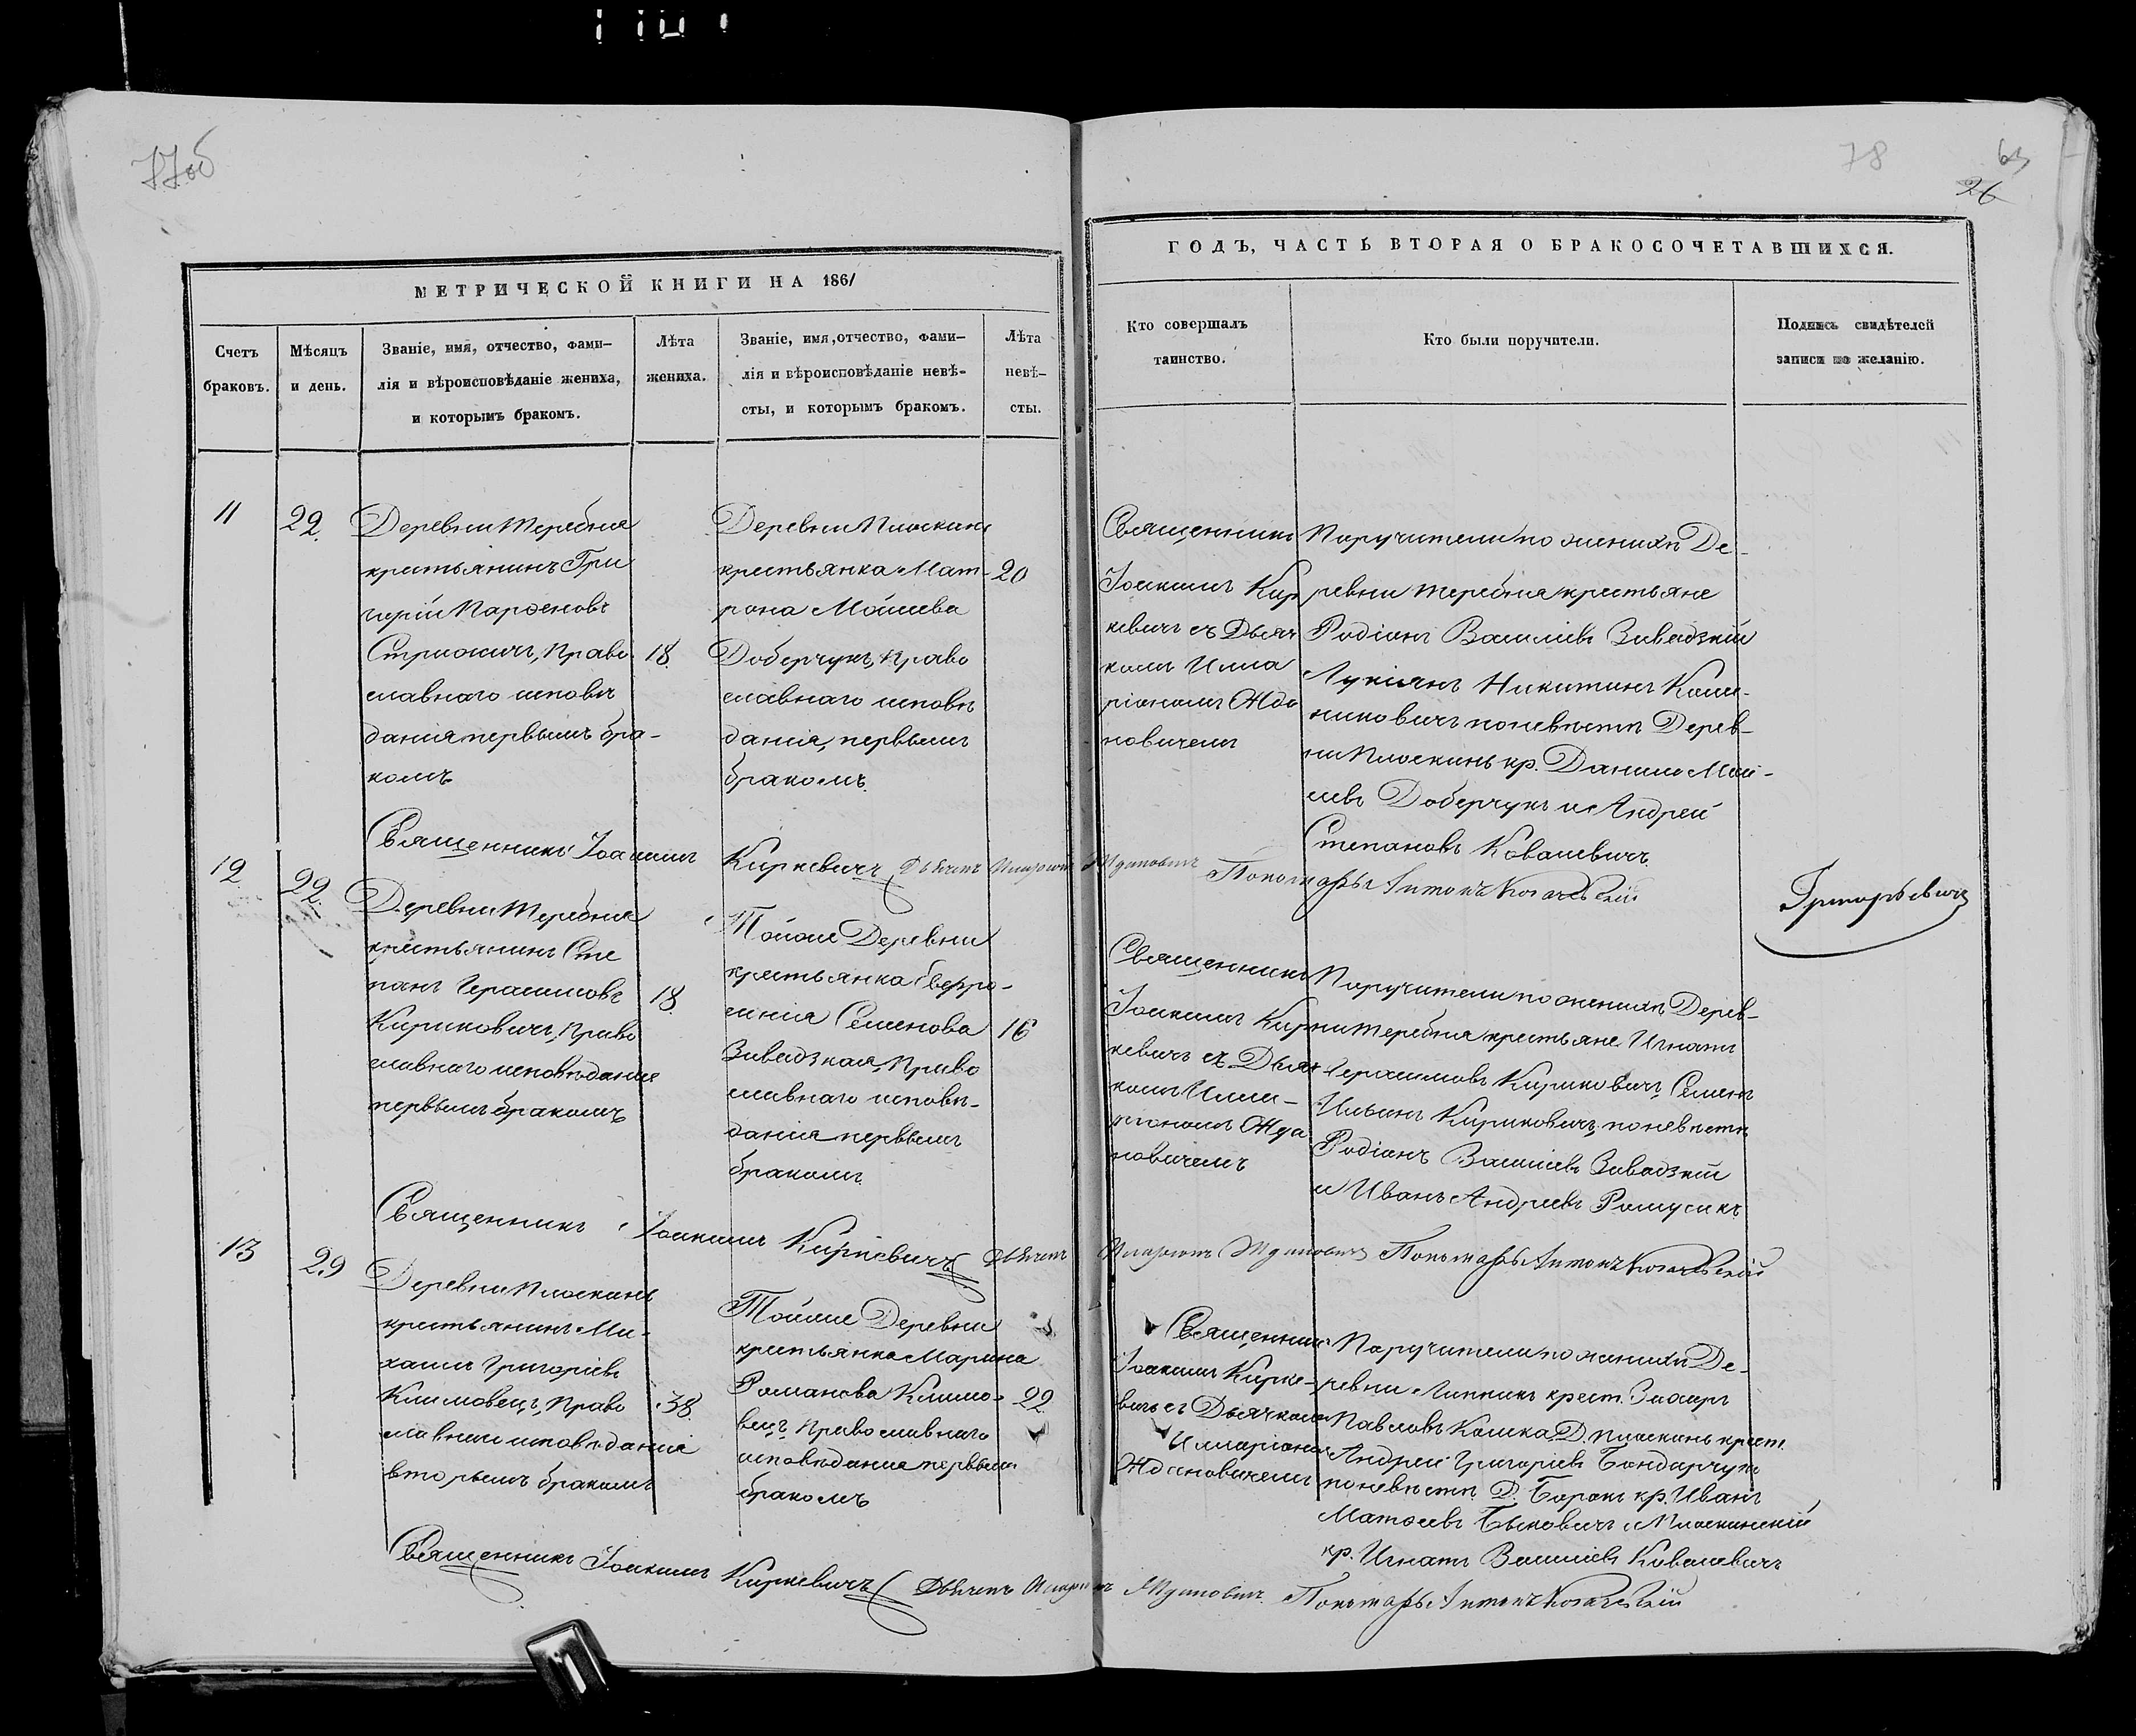 77об
78
63
26
МЕТРИЧЕСКОЙ КНИГИ НА 1861
ГОДЪ, ЧАСТЬ ВТОРАЯ О БРАКОСОЧЕТАВШИХСЯ.
Счетъ
браковъ.
Мѣсяцъ
и день.
Званіе, имя, отчество, фами-
лія и вѣроисповѣданіе жениха,
и которымъ бракомъ.
Лѣта
жениха.
Званіе, имя, отчество, фами-
лія и вѣроисповѣданіе невѣ-
сты, и которымъ бракомъ.
Лѣта
невѣ-
сты.
Кто совершалъ
таинство.
Кто были поручители.
Подпись свидѣтелей
записи по желанію.
11
22.
Деревни Теребня
крестьянинъ Гри
горій Парѳеновъ
Право
славнаго исповѣ
данія первымъ бра-
комъ
18.
Деревни Плоскинь
крестьянка Мат-
рона Моисеева
Доберчукъ, Право
славнаго исповѣ
данія, первымъ
бракомъ.
20
Священникъ
Іоакимъ Кир
кевичъ съ Дьяч
комъ Илла
ріономъ Жда
новичемъ
Поручители по женихѣ Де-
ревни Теребня крестьяне
Родіонъ Васильевъ Завадзкій
Лукіянъ Никитинъ
по невѣстѣ Дерев-
ни Плоскинь кр. Данило Мои-
сеевъ Доберчукъ и Андрей
Степановъ Ковалевичъ.
Священникъ Іоакимъ Киркевичъ Дьячекъ Илларіонъ Ждановичъ Пономарь Антонъ
Григорьевичъ
12
22.
Деревни Теребня
крестьянинъ Сте
панъ Герасимовъ
Кириковичъ, Право
славнаго исповѣданія
первымъ бракомъ
18.
Тойже Деревни
крестьянка Евфро-
синія Семенова
Завадзкая, Право
славнаго исповѣ-
данія первымъ
бракомъ.
16
Священникъ
Іоакимъ Кир
кевичъ съ Дьяч
комъ Илла-
ріономъ Жда
новичемъ
Поручители по женихѣ Дерев-
ни Теребня крестьяне Игнатъ
Герасимовъ Кириковичъ, Семенъ
Ильинъ Кириковичъ, по невѣстѣ
Родіонъ Васильевъ Завадзкій
и Иванъ Андреевъ
Священникъ Іоакимъ Киркевичъ Дьячекъ Илларіонъ Ждановичъ Пономарь Антонъ
13
29
Деревни Плоскинь
крестьянинъ Ми-
хаилъ Григоріевъ
Климовецъ, Право
славнаго исповѣданія
вторымъ бракомъ
38.
Тойже Деревни
крестьянка Марина
Романова Климо-
вецъ, Православнаго
исповѣданія первымъ
бракомъ
22
Священникъ
Іоакимъ Кирке-
вичъ съ Дьячкомъ
Илларіономъ
Ждановичемъ
Поручители по женихѣ Де-
ревни крест. Захаръ
Павловъ Д. Плоскинь крест.
Андрей Григоріевъ Бондарчукъ
по невѣстѣ Д. кр. Иванъ
Матѳеевъ Быковичъ и Плоскинскій
кр. Игнатъ Васильевъ Ковалевичъ
Священникъ Іоакимъ Киркевичъ Дьячекъ Илларіонъ Ждановичъ Пономарь Антонъ